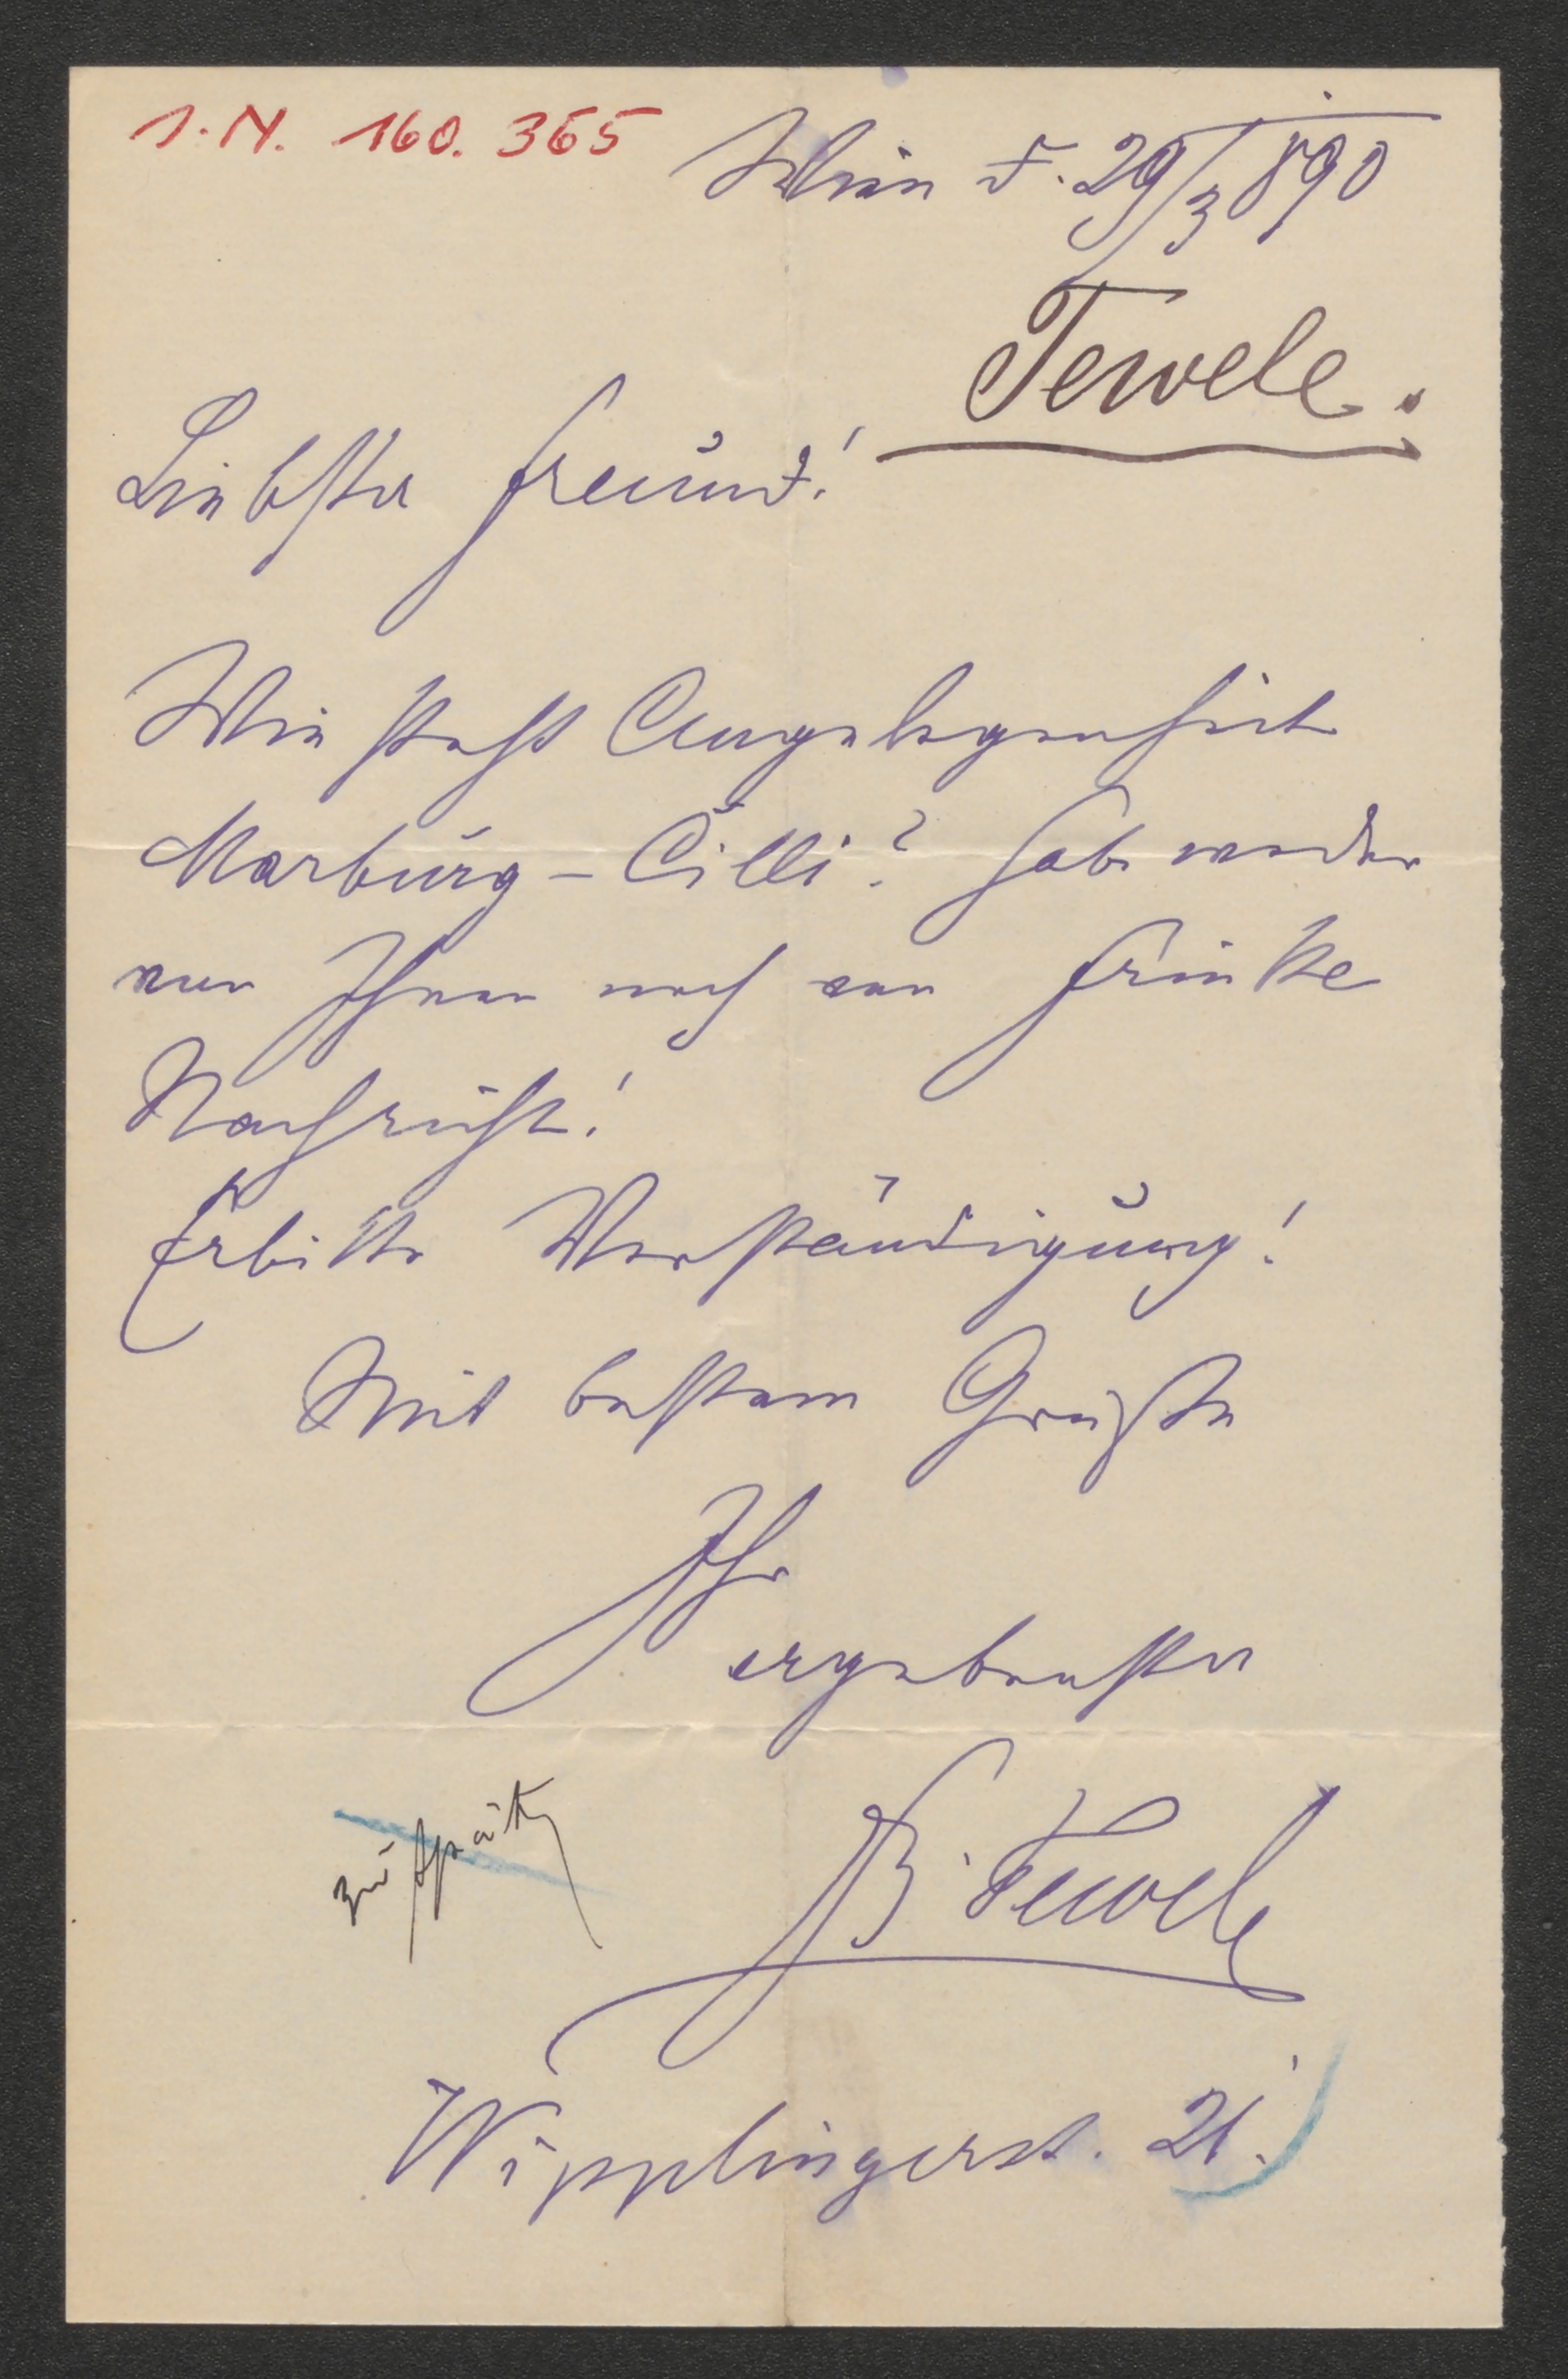 I.N. 160.365
Wien d. 29/3 890
Tewele.
Liebster Freund!
Wie steht Angelegenheit
Marburg - Cilli? Habe weder
von Ihnen noch von Frinke
Nachricht!
Erbitte Verständigung!
Mit bestem Gruße
Ihr
ergebenster
F. Tewele
Wipplingerst. 21.